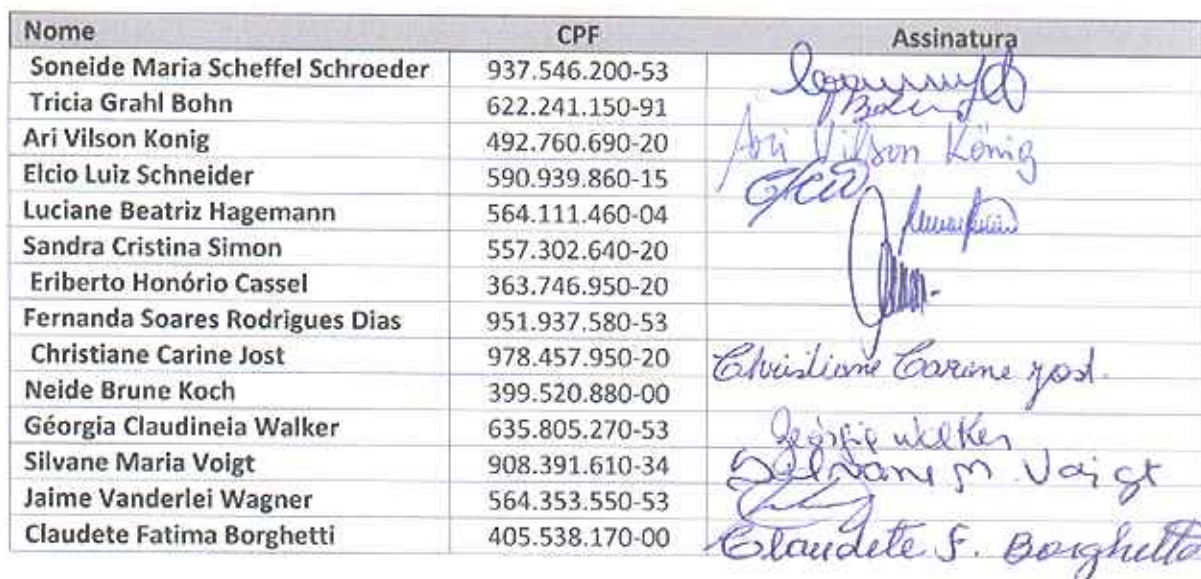 Nome CPF Assinatura
Soneide Maria Scheffel Schroeder 937.546.200-53
Tricia Grahl Bohn 622.241.150-91
Ari Vilson Konig 492.760.690-20 Ari Vilson König
Elcio Luiz Schneider 590.939.860-15
Luciane Beatriz Hagemann 564.111.460-04
Sandra Cristina Simon 557.302.640-20
Eriberto Honório Cassel 363.746.950-20
Fernanda Soares Rodrigues Dias 951.937.580-53
Christiane Carine Jost 978.457.950-20 Christiane Carine Jost.
Neide Brune Koch 399.520.880-00
Géorgia Claudineia Walker 635.805.270-53 Geórgia Walker
Silvane Maria Voigt 908.391.610-34 Silvane M Voigt
Jaime Vanderlei Wagner 564.353.550-53
Claudete Fatima Borghetti 405.538.170-00 Claudete F. Borghetti